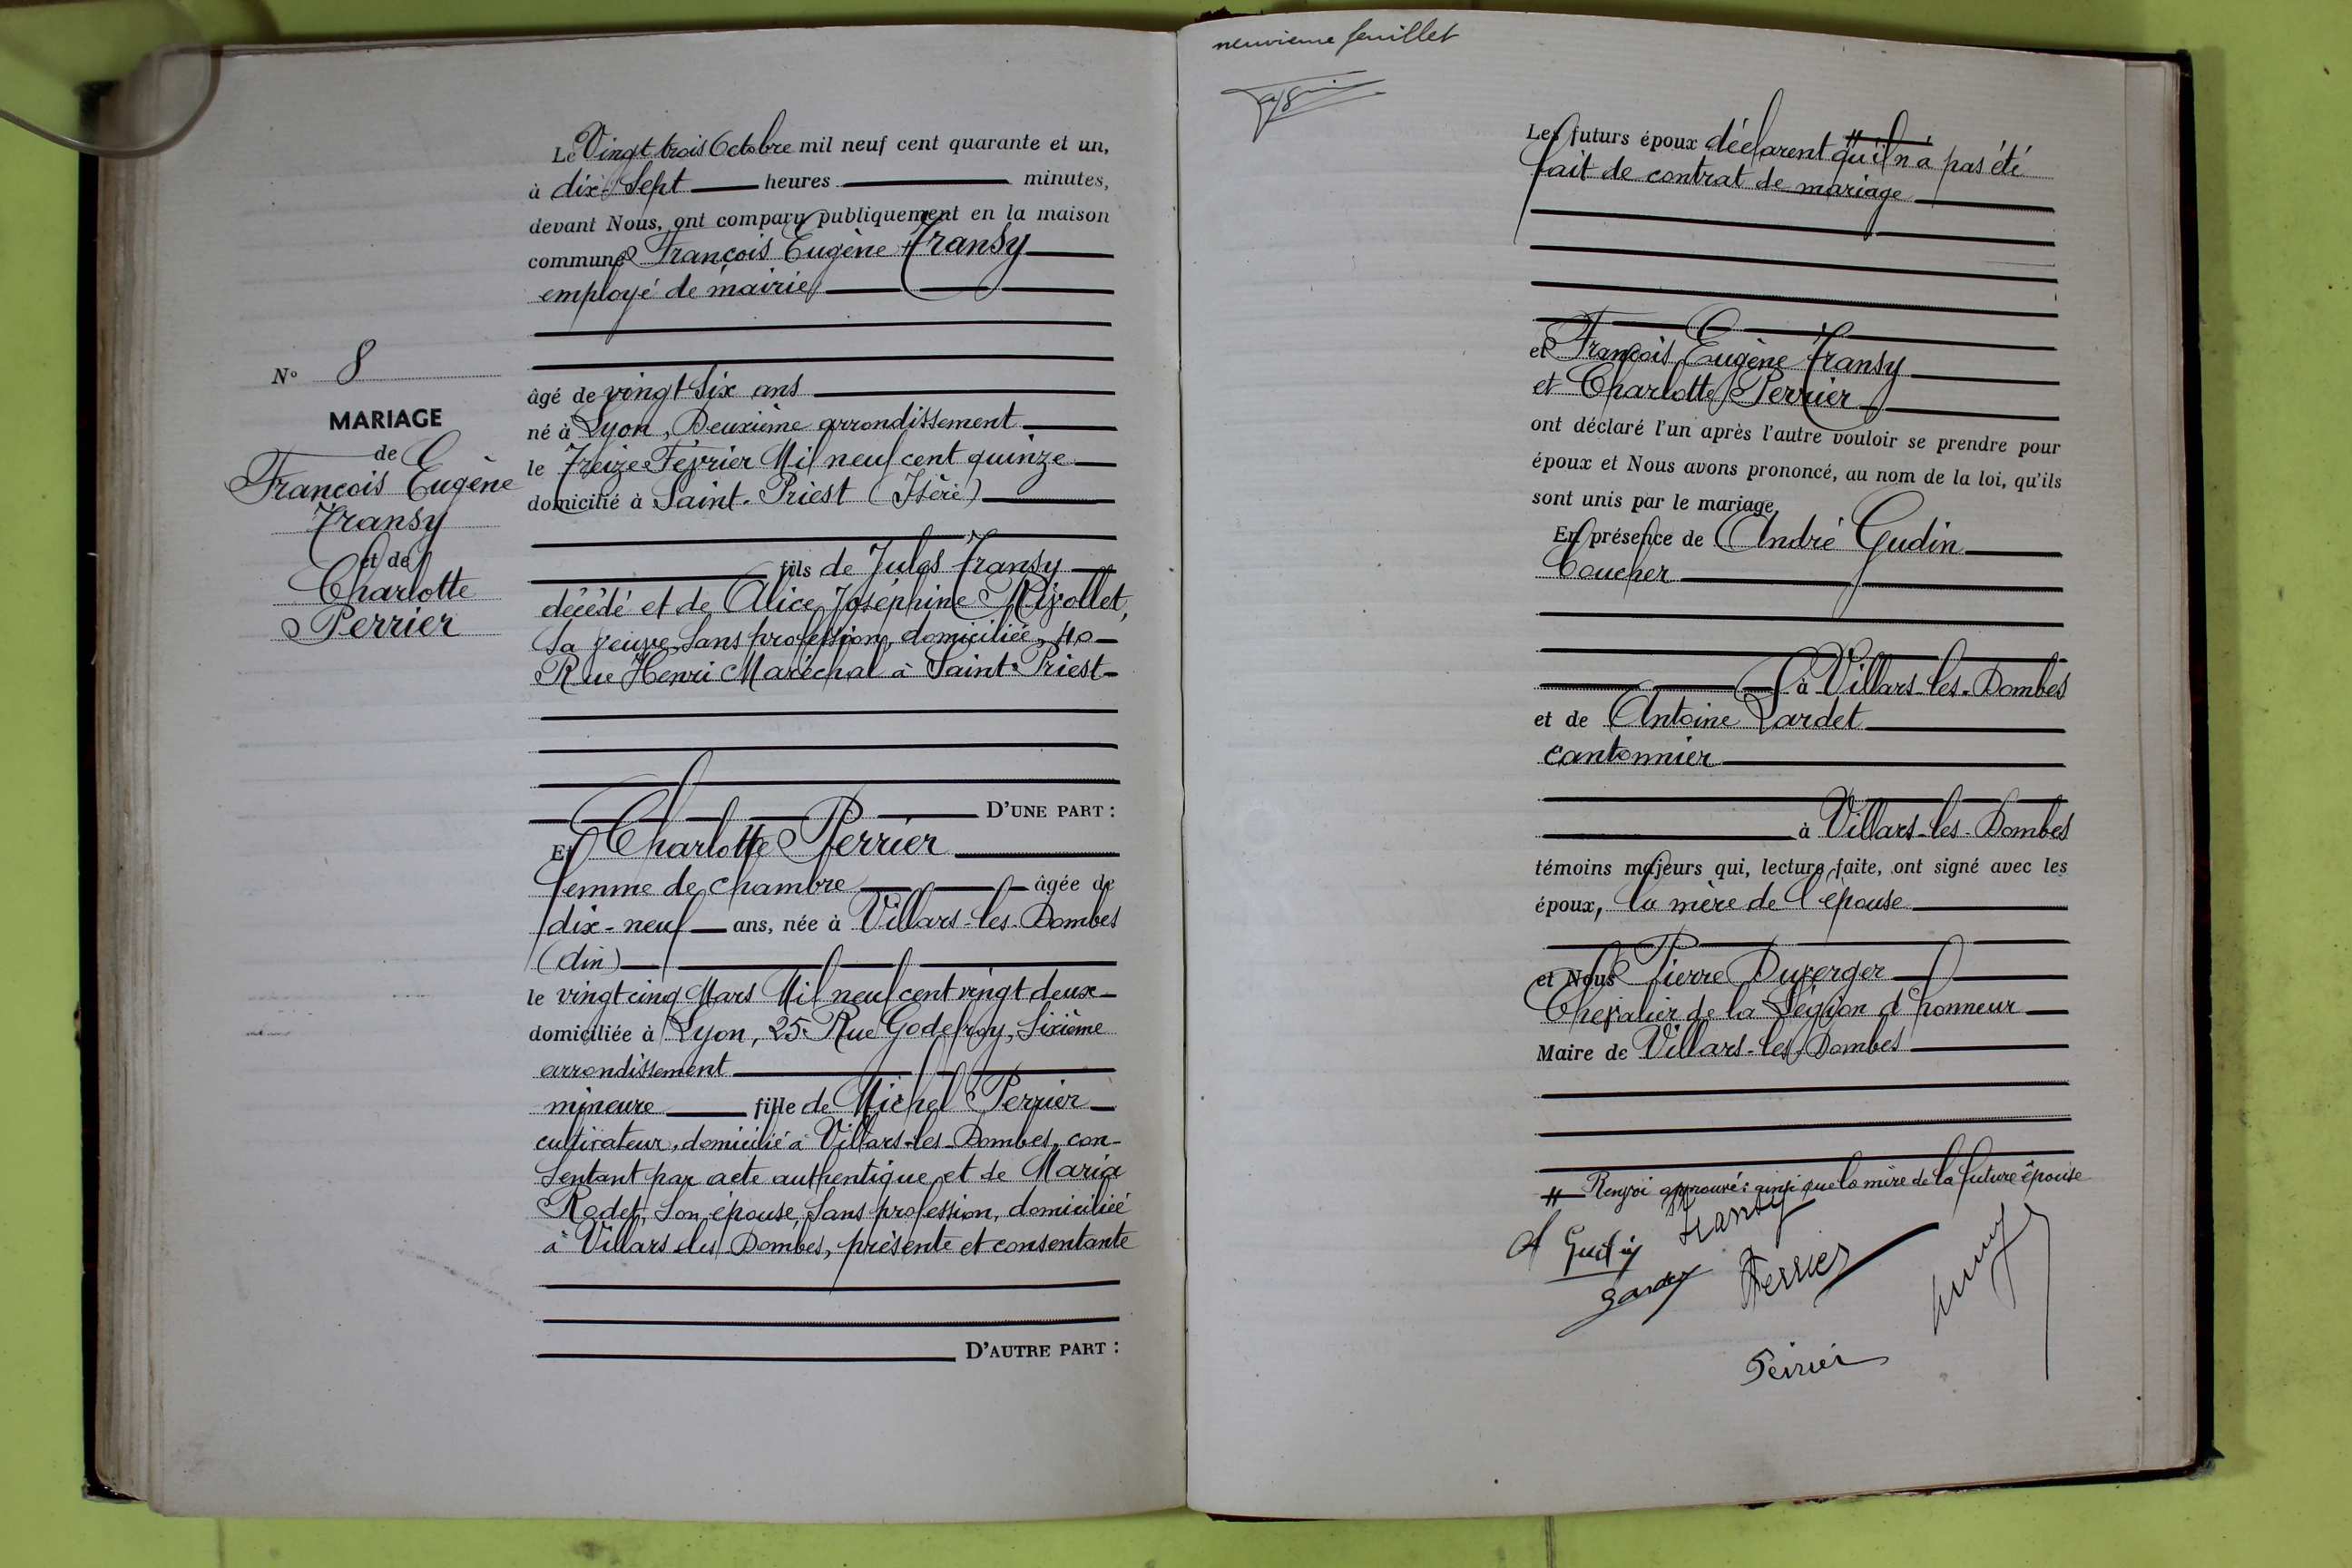 Le Vingt trois Octobre mil neuf cent quarante et un,
à dix-sept heures minutes,
devant Nous, ont comparu publiquement en la maison
commune François Eugène Transy
employé de mairie
N° 8
MARIAGE
de
François Eugène
Transy
et de
Charlotte
Perrier
âgé de vingt six ans
né à Lyon, Deuxième arrondissement
le Treize Février Mil neuf cent quinze
domicilié à Saint-Priest (Isère)
fils de Jules Transy
décédé et de Alice Joséphine Mijollet,
sa veuve, sans profession, domiciliée, 40
Rue Henri Maréchal à Saint-Priest
D'UNE PART :
Et Charlotte Perrier
femme de chambre âgée de
dix-neuf ans, née à Villars-les-Dombes
(Ain)
le vingt cinq Mars Mil neuf cent vingt deux
domiciliée à Lyon, 25 Rue Godefroy, Sixième
arrondissement
mineure fille de Michel Perrier
cultivateur, domicilié à Villars-les-Dombes, con-
sentant par acte authentique et de Maria
Rodet, son épouse, sans profession, domiciliée
à Villars les Dombes, présente et consentante
D'AUTRE PART :
neuvième feuillet
Les futurs époux déclarent qu'il n'a pas été
fait de contrat de mariage
et François Eugène Transy
et Charlotte Perrier
ont déclaré l'un après l'autre vouloir se prendre pour
époux et Nous avons prononcé, au nom de la loi, qu'ils
sont unis par le mariage.
En présence de André Gudin
Coucher
à Villars-les-Dombes
et de Antoine Lardet
cantonnier
à Villars-les-Dombes
témoins majeurs qui, lecture faite, ont signé avec les
époux, la mère de l'épouse
et Nous Pierre Duverger
Chevalier de la Légion d'honneur
Maire de Villars-les-Dombes
Renvoi approuvé : ainsi que la mère de la future épouse
Transy
A
Perrier